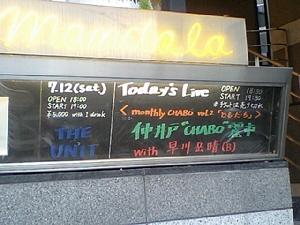 Mandala
7.12 (sat.)
OPEN 18:00
START 19:00
¥5,000 with 1 drink
THE
UNIT
Today's Live
OPEN 18:30
START 19:30
<monthly CHABO vol.2
仲井戸"CHABO"麗市
with 早川岳晴(B)